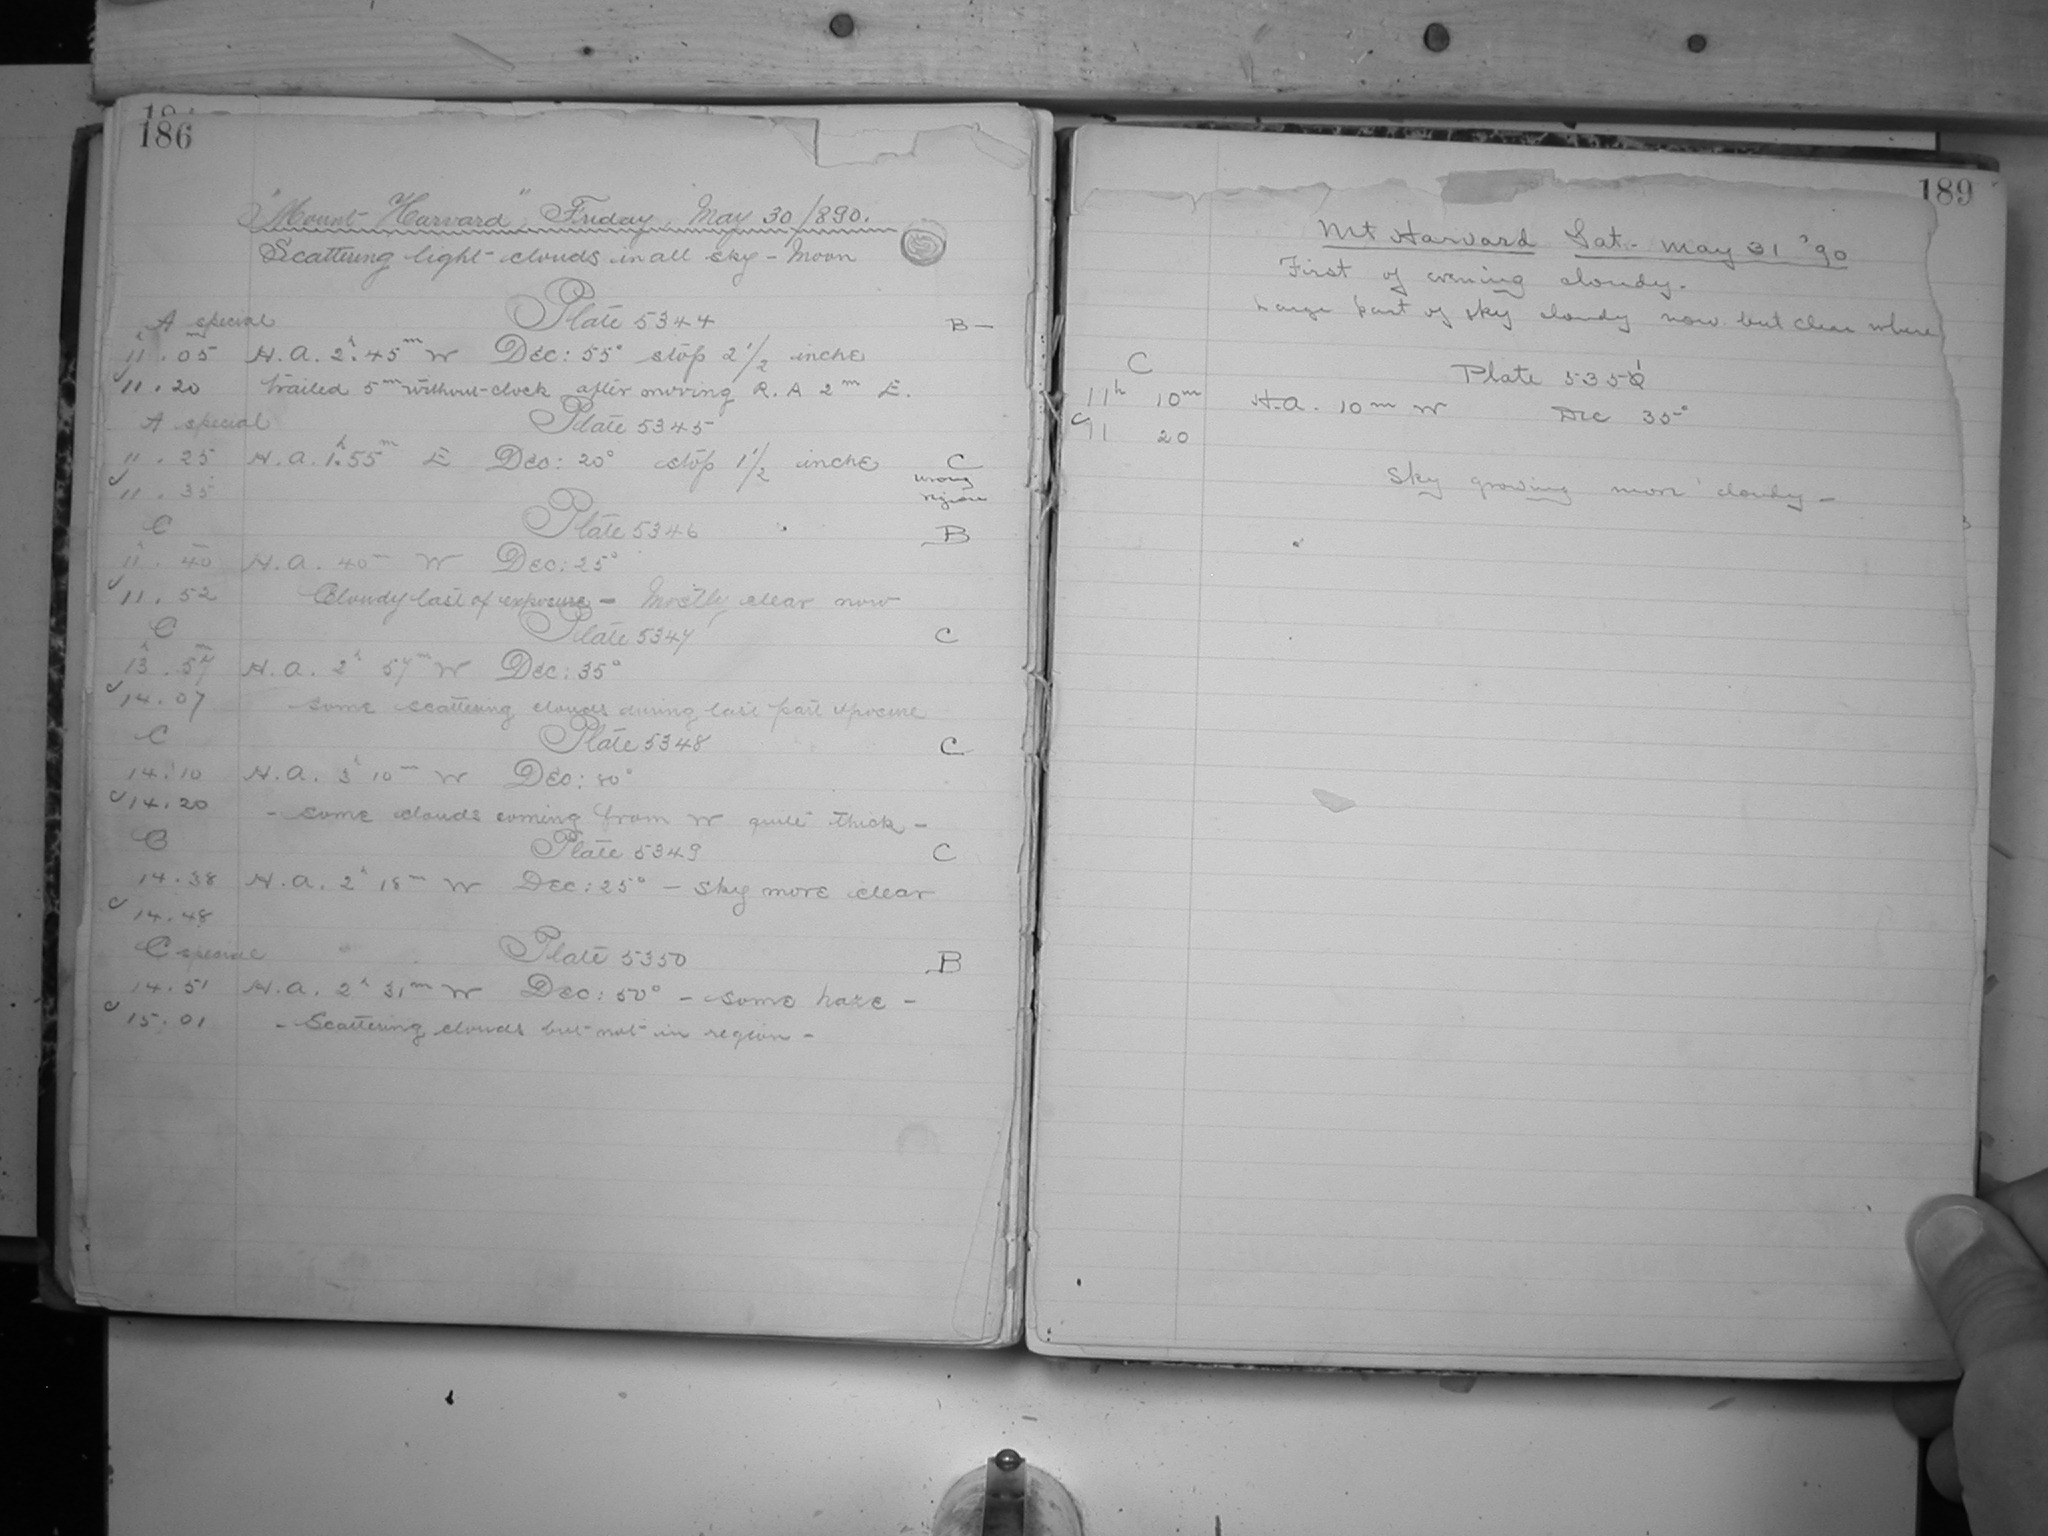 184
186
"Mount Harvard" Friday, May 30/890.
Scattering light clouds in all sky - Moon
A special Plate 5344 B-
11h.05m H.A. 2h.45m W Dec: 55° stop 2 1/2 inche
11.20 trailed 5m without clock after moving R.A 2m E.
A special Plate 5345
11.25 H.A. 1h.55m E Dec: 20° stop 1 1/2 inche C
11.35 wrong
region
C Plate 5346 B
11h.40m H.A. 40m W Dec: 25°
11.52 Cloudy last of exposure - Mostly clear now
C Plate 5347 C
13h.57m H.A. 2h 57m W Dec: 35°
14.07 some scattering clouds during last part exposure
C Plate 5348 C
14.10 H.A. 3h 10m W Dec: 80°
14.20 - some clouds coming from W quite thick -
C Plate 5349 C
14.38 H.A. 2h 18m W Dec: 25° - sky more clear
14.48
C special Plate 5350 B
14.51 H.A. 2h 31m W Dec: 50° - some haze -
15.01 - Scattering clouds but not in region -
189
Mt Harvard Sat. May 31 '90
First of evening cloudy.
Large part of sky cloudy now but clear where
C Plate 5351
11h 10m H.A. 10m W Dec 35°
11 20
Sky growing more cloudy -